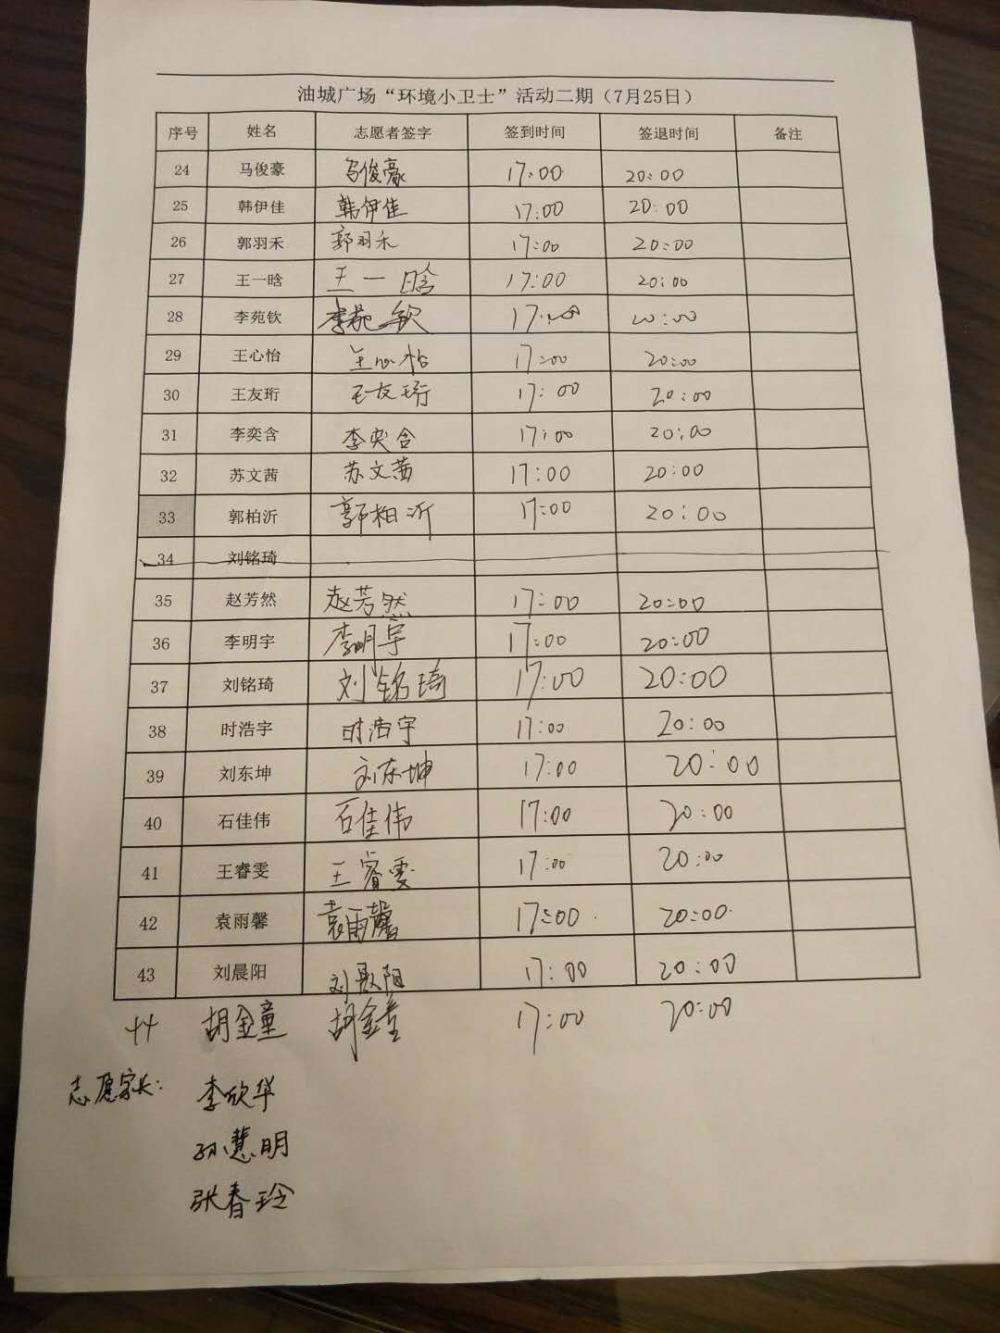 油城广场“环境小卫士”活动二期（7月25日）
序号 姓名 志愿者签字 签到时间 签退时间 备注
24 马俊豪 马俊豪 17:00 20:00
25 韩伊佳 韩伊佳 17:00 20:00
26 郭羽禾 郭羽禾 17:00 20:00
27 王一晗 王一晗 17:00 20:00
28 李苑钦 李苑钦 17:00 20:00
29 王心怡 王心怡 17:00 20:00
30 王友珩 王友珩 17:00 20:00
31 李奕含 李奕含 17:00 20:00
32 苏文茜 苏文茜 17:00 20:00
33 郭柏沂 郭柏沂 17:00 20:00
34 刘铭琦
35 赵芳然 赵芳然 17:00 20:00
36 李明宇 李明宇 17:00 20:00
37 刘铭琦 刘铭琦 17:00 20:00
38 时浩宇 时浩宇 17:00 20:00
39 刘东坤 刘东坤 17:00 20:00
40 石佳伟 石佳伟 17:00 20:00
41 王睿雯 王睿雯 17:00 20:00
42 袁雨馨 袁雨馨 17:00 20:00
43 刘晨阳 刘晨阳 17:00 20:00
44 胡金童 胡金童 17:00 20:00
志愿家长： 李欣华
孙慧明
张春玲